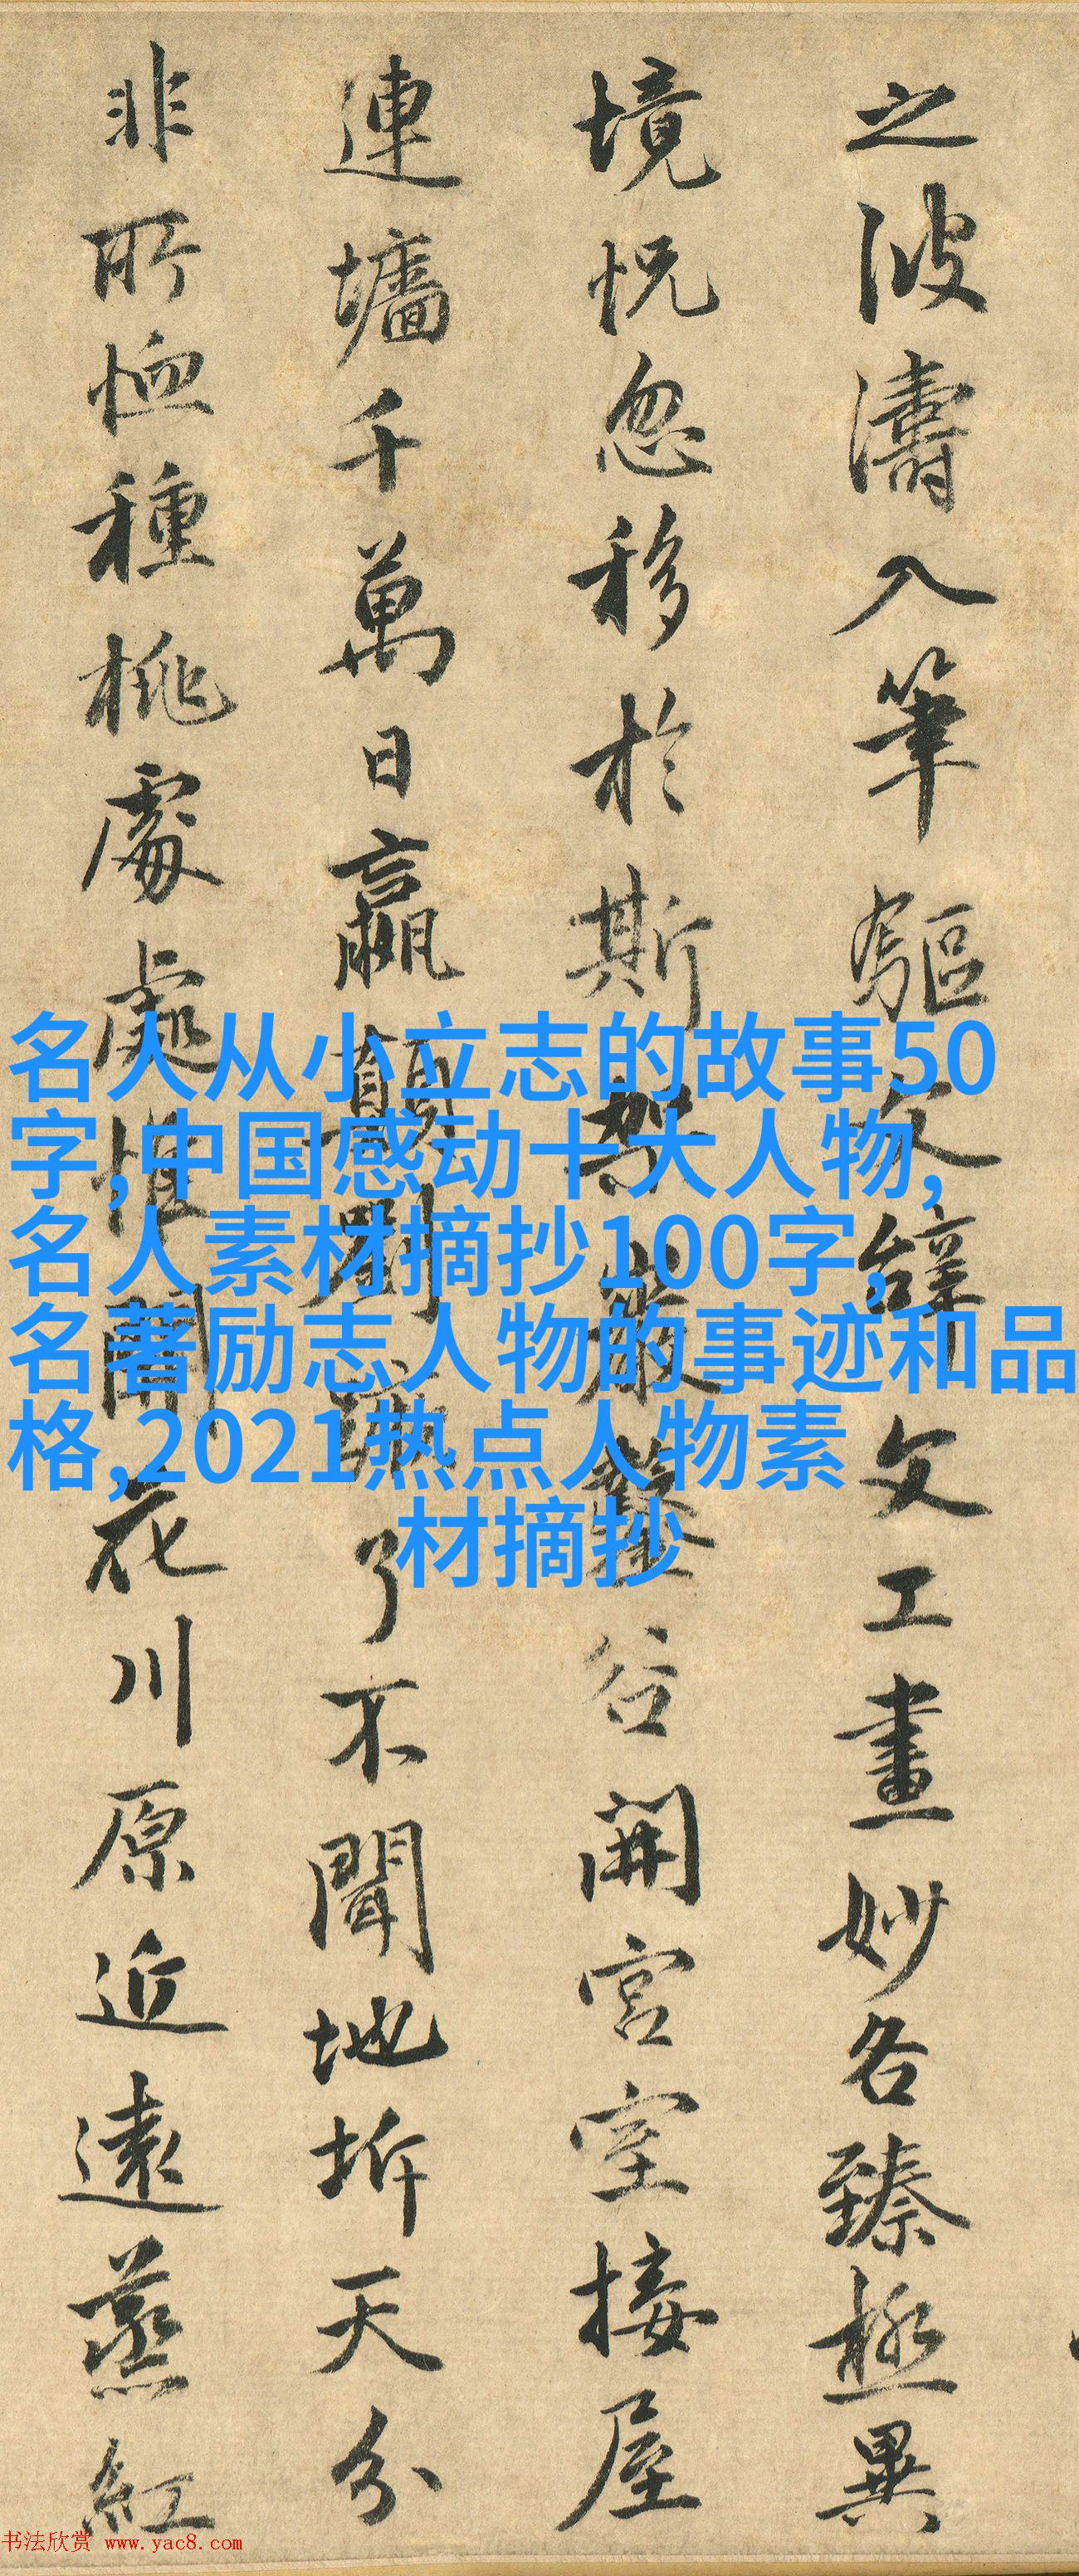 之波濤入筆驅文辭文工畫妙各臻極異
境怳忽移於斯架巖鑿谷開宮室接屋
連墻千萬日嬴顛劉蹶了不聞地坼天分
非所恤種桃處處惟開花川原近遠蒸紅
名人从小立志的故事50
字,中国感动十大人物,
名人素材摘抄100字,
名著励志人物的事迹和品
格,2021热点人物素
材摘抄
书法欣赏 www.yac8.com